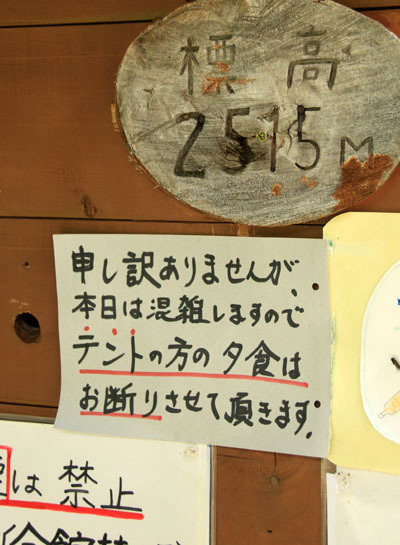 標高
2515M
申し訳ありませんが、
本日は混雑しますので
テントの方の夕食は
お断りさせて頂きます。
は禁止